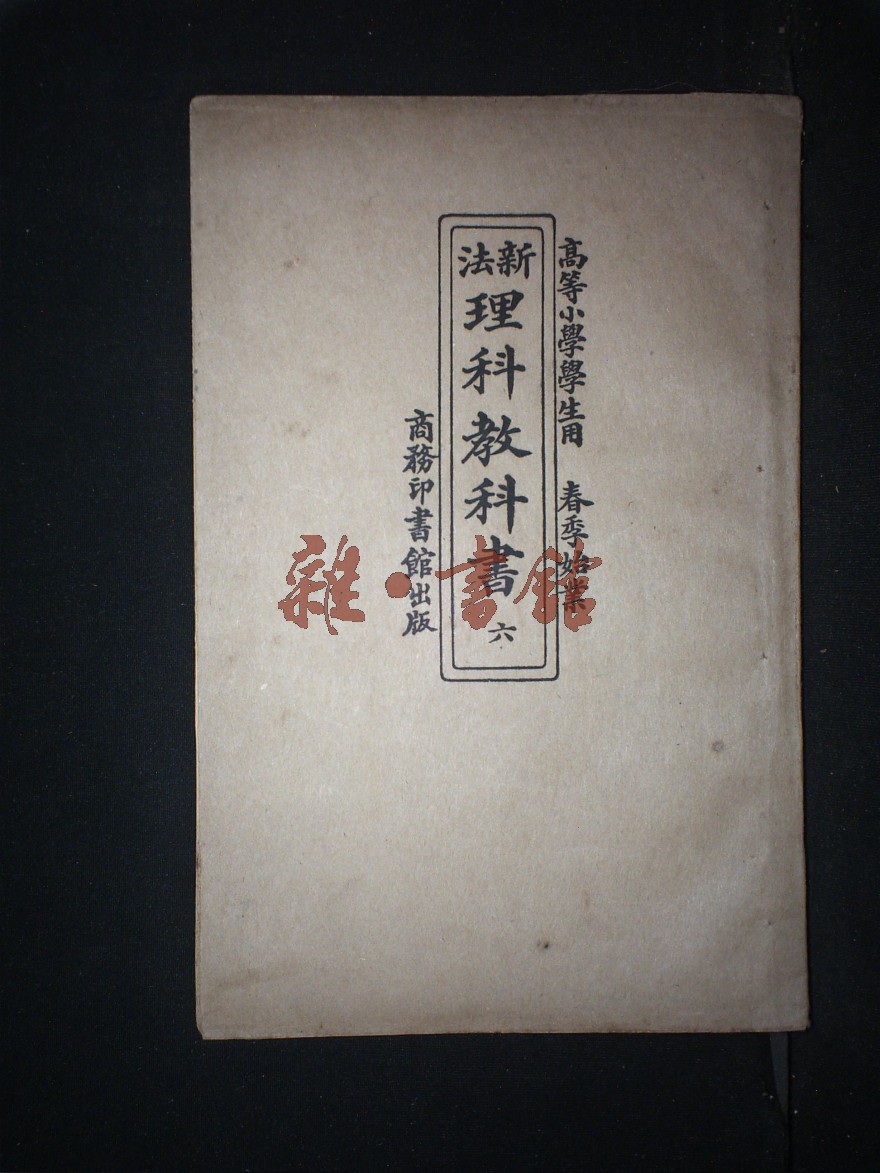 高等小學學生用 春季始業
新法
理科教科書 六
商務印書館出版
雜·書館